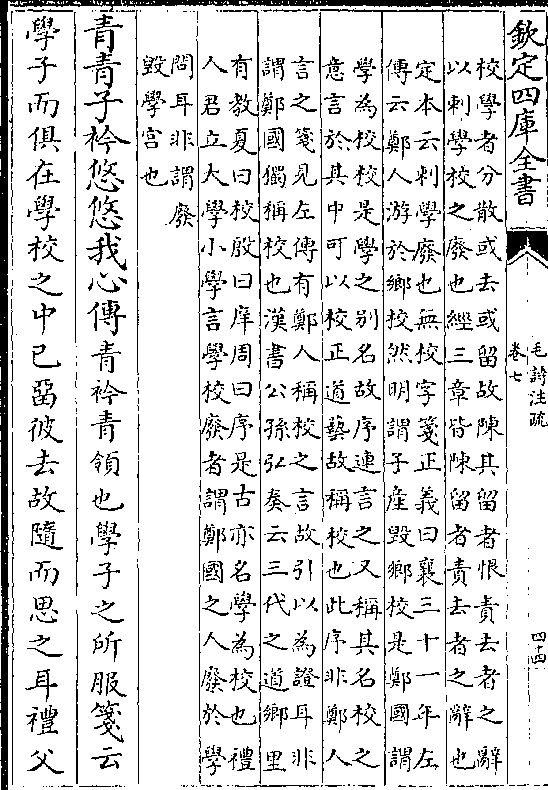 欽定四庫全書
毛詩注疏
卷七
四十四
校學者分散或去或留故陳其留者恨責去者之辭
以刺學校之廢也經三章皆陳留者責去者之辭也
定本云刺學廢也無校字箋正義曰襄三十一年左
傳云鄭人游於鄉校然明謂子產毀鄉校是鄭國謂
學為校校是學之別名故序連言之又稱其名校之
意言於其中可以校正道藝故稱校也此序非鄭人
言之箋見左傳有鄭人稱校之言故引以為證耳非
謂鄭國獨稱校也漢書公孫弘奏云三代之道鄉里
有教夏曰校殷曰庠周曰序是古亦名學為校也禮
人君立大學小學言學校廢者謂鄭國之人廢於學
問耳非謂廢
毀學宮也
青青子衿悠悠我心傳青衿青領也學子之所服箋云
學子而俱在學校之中已留彼去故隨而思之耳禮父